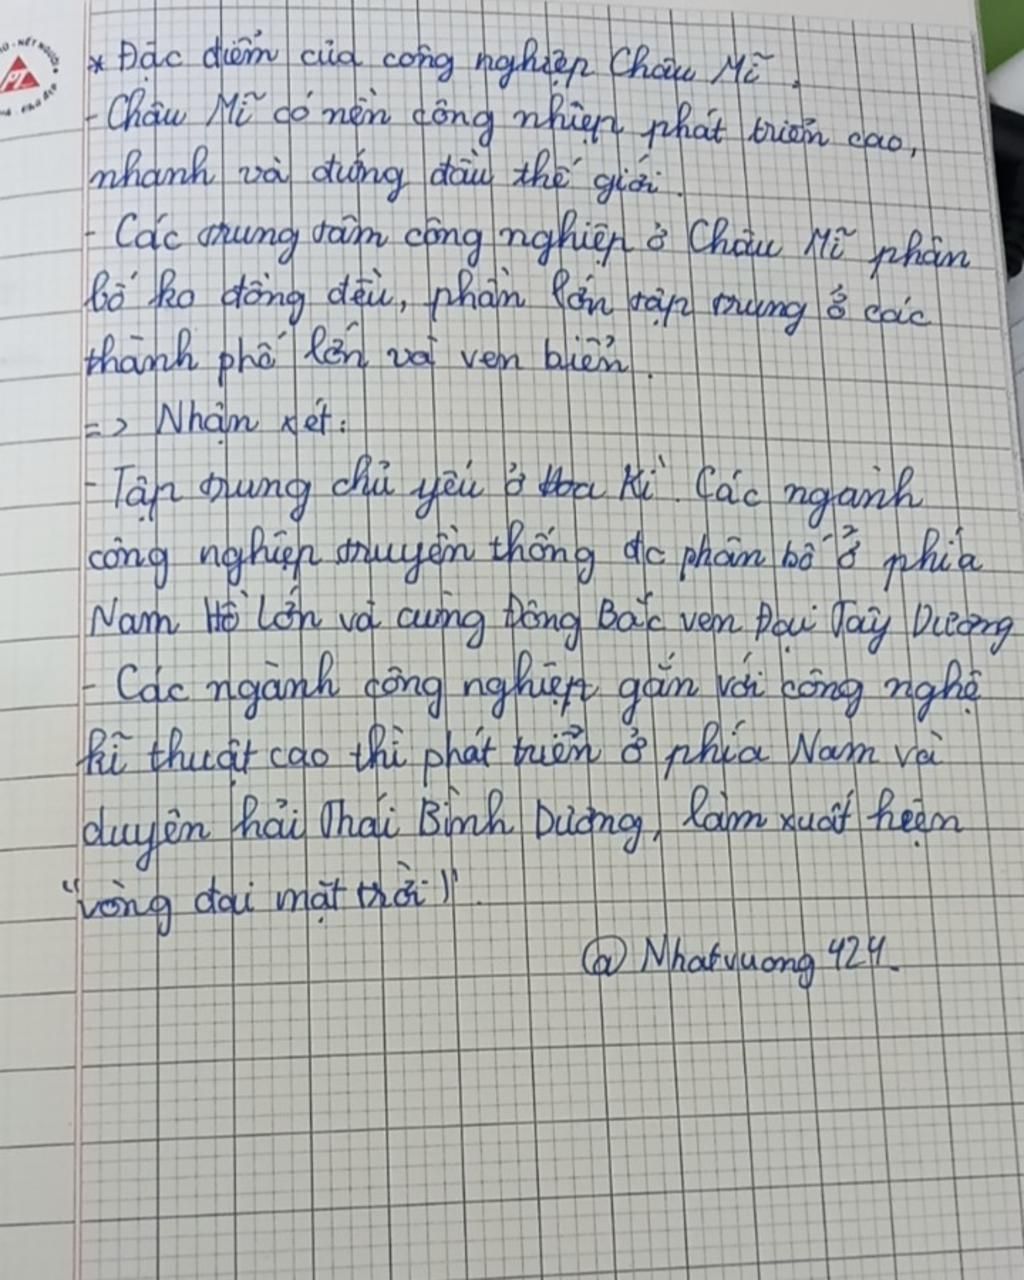 * Đặc điểm của công nghiệp Châu Mĩ.
- Châu Mĩ có nền công nhiệp phát triển cao,
nhanh và đứng đầu thế giới.
- Các trung tâm công nghiệp ở Châu Mĩ phân
bố ko đồng đều, phần lớn tập trung ở các
thành phố lớn và ven biển.
=> Nhận xét:
- Tập trung chủ yếu ở Hoa Kì. Các ngành
công nghiệp truyền thống đc phân bố ở phía
Nam Hồ Lớn và cùng Đông Bắc ven Đại Tây Dương
- Các ngành công nghiệp gắn với công nghệ
kĩ thuật cao thì phát triển ở phía Nam và
duyên hải Thái Bình Dương, làm xuất hiện
"vòng đai mặt trời)".
@ Nhatvuong 424.
PL